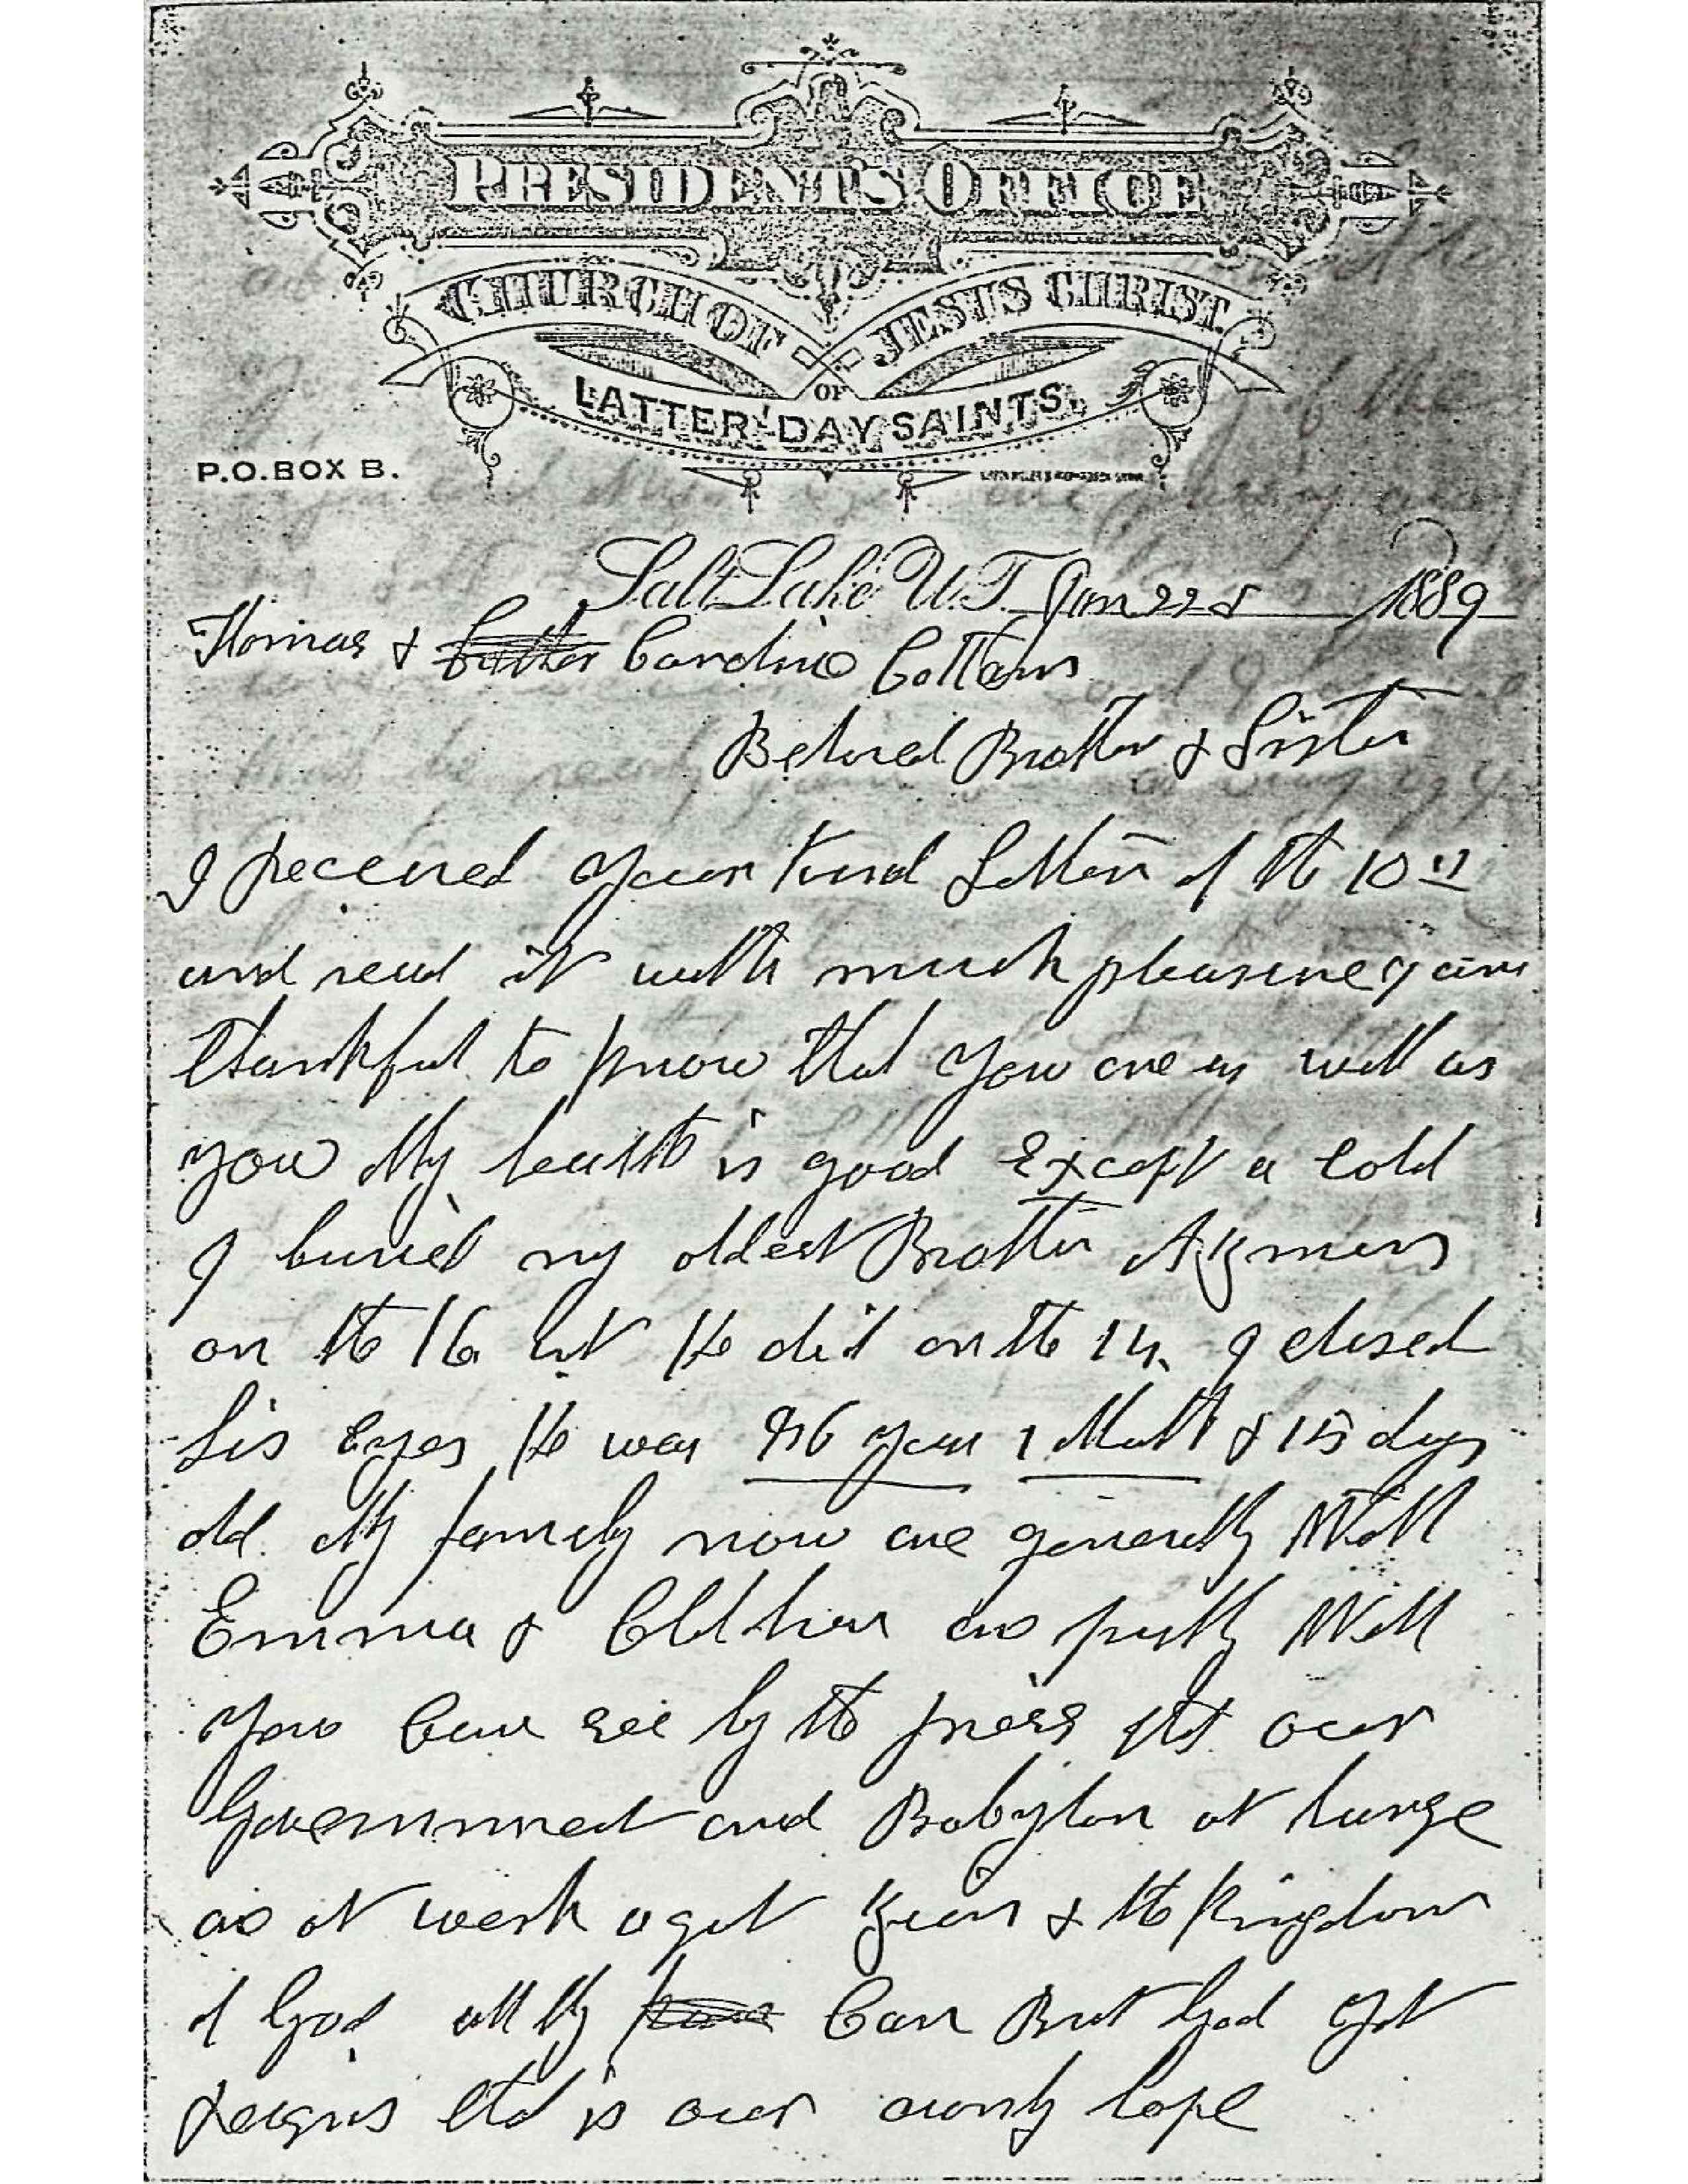 PRESIDENT'S OFFICE
CHURCH OF JESUS CHRIST
OF
LATTER-DAY SAINTS.
P.O. BOX B.
Salt Lake U.T. Jan 22d 1889
Thomas & Caroline Cottam
Beloved Brother & Sister
I received your kind Letter of the 10th
and read it with much pleasure I am
thankful to know that you are as well as
you My health is good Except a Cold
I buried my oldest Brother Azmon
on the 16 he died on the 14. I closed
his Eyes He was 86 year 1 Month & 15 days
old. My family now are generally Well
Emma & Children are pretty Well
You Can see by the press that our
Government and Babylon at large
are at work agst Zion & the Kingdom
of God all they Can But God yet
reigns that is our ownly hope